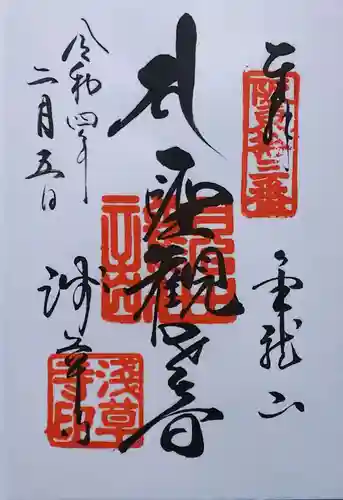 奉拝
坂東十三番
金龍山
聖観世音
浅草寺
浅草寺印
令和四年
二月五日